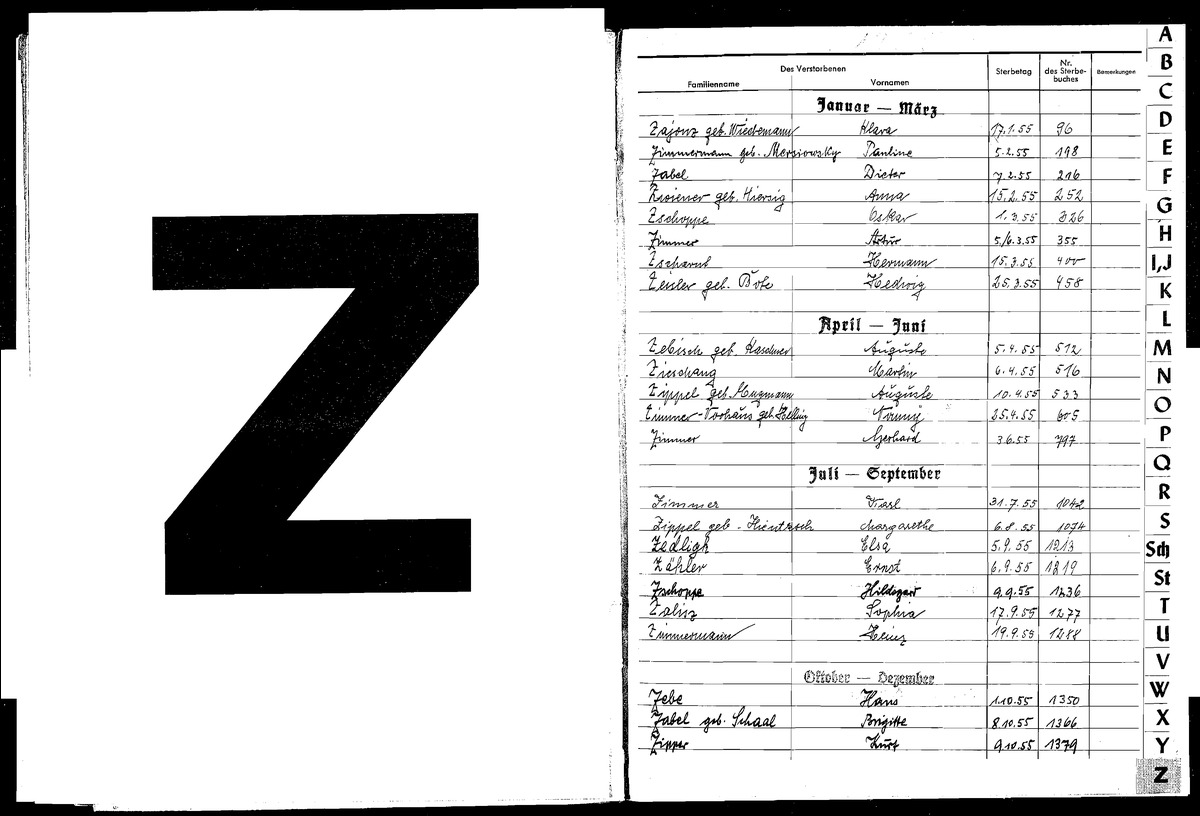 Z
Des Verstorbenen
Familienname Vornamen Sterbetag Nr. des Sterbe-buches Bemerkungen
Januar — März
Zajonz geb. Wiedemann Klara 17.1.55 96
Zimmermann geb. Mersiowsky Pauline 5.2.55 198
Zabel Dieter 7.2.55 216
geb. Hiersig Anna 15.2.55 252
Zschoppe Oskar 1.3.55 326
Zimmer Artur 5./6.3.55 355
Hermann 15.3.55 400
geb. Bote Hedwig 25.3.55 458
April — Juni
Zebisch geb. Kaschner Auguste 5.4.55 512
Zieschang Martin 6.4.55 516
Zippel geb. Auguste 10.4.55 533
Zimmer-Vorhaus geb. Helling 25.4.55 605
Zimmer Gerhard 3.6.55 797
Juli — September
Zimmer Karl 31.7.55 1042
Zippel geb. Hientzsch Margarethe 6.8.55 1074
Elsa 5.9.55 1213
Zähler Ernst 6.9.55 1219
Zschoppe Hildegard 9.9.55 1236
Sophia 17.9.55 1277
Zimmermann Heinz 19.9.55 1288
Oktober — Dezember
Zebe Hans 1.10.55 1350
Zabel geb. Schaal Brigitte 8.10.55 1366
Zipper Kurt 9.10.55 1379
A
B
C
D
E
F
G
H
I,J
K
L
M
N
O
P
Q
R
S
Sch
St
T
U
V
W
X
Y
Z